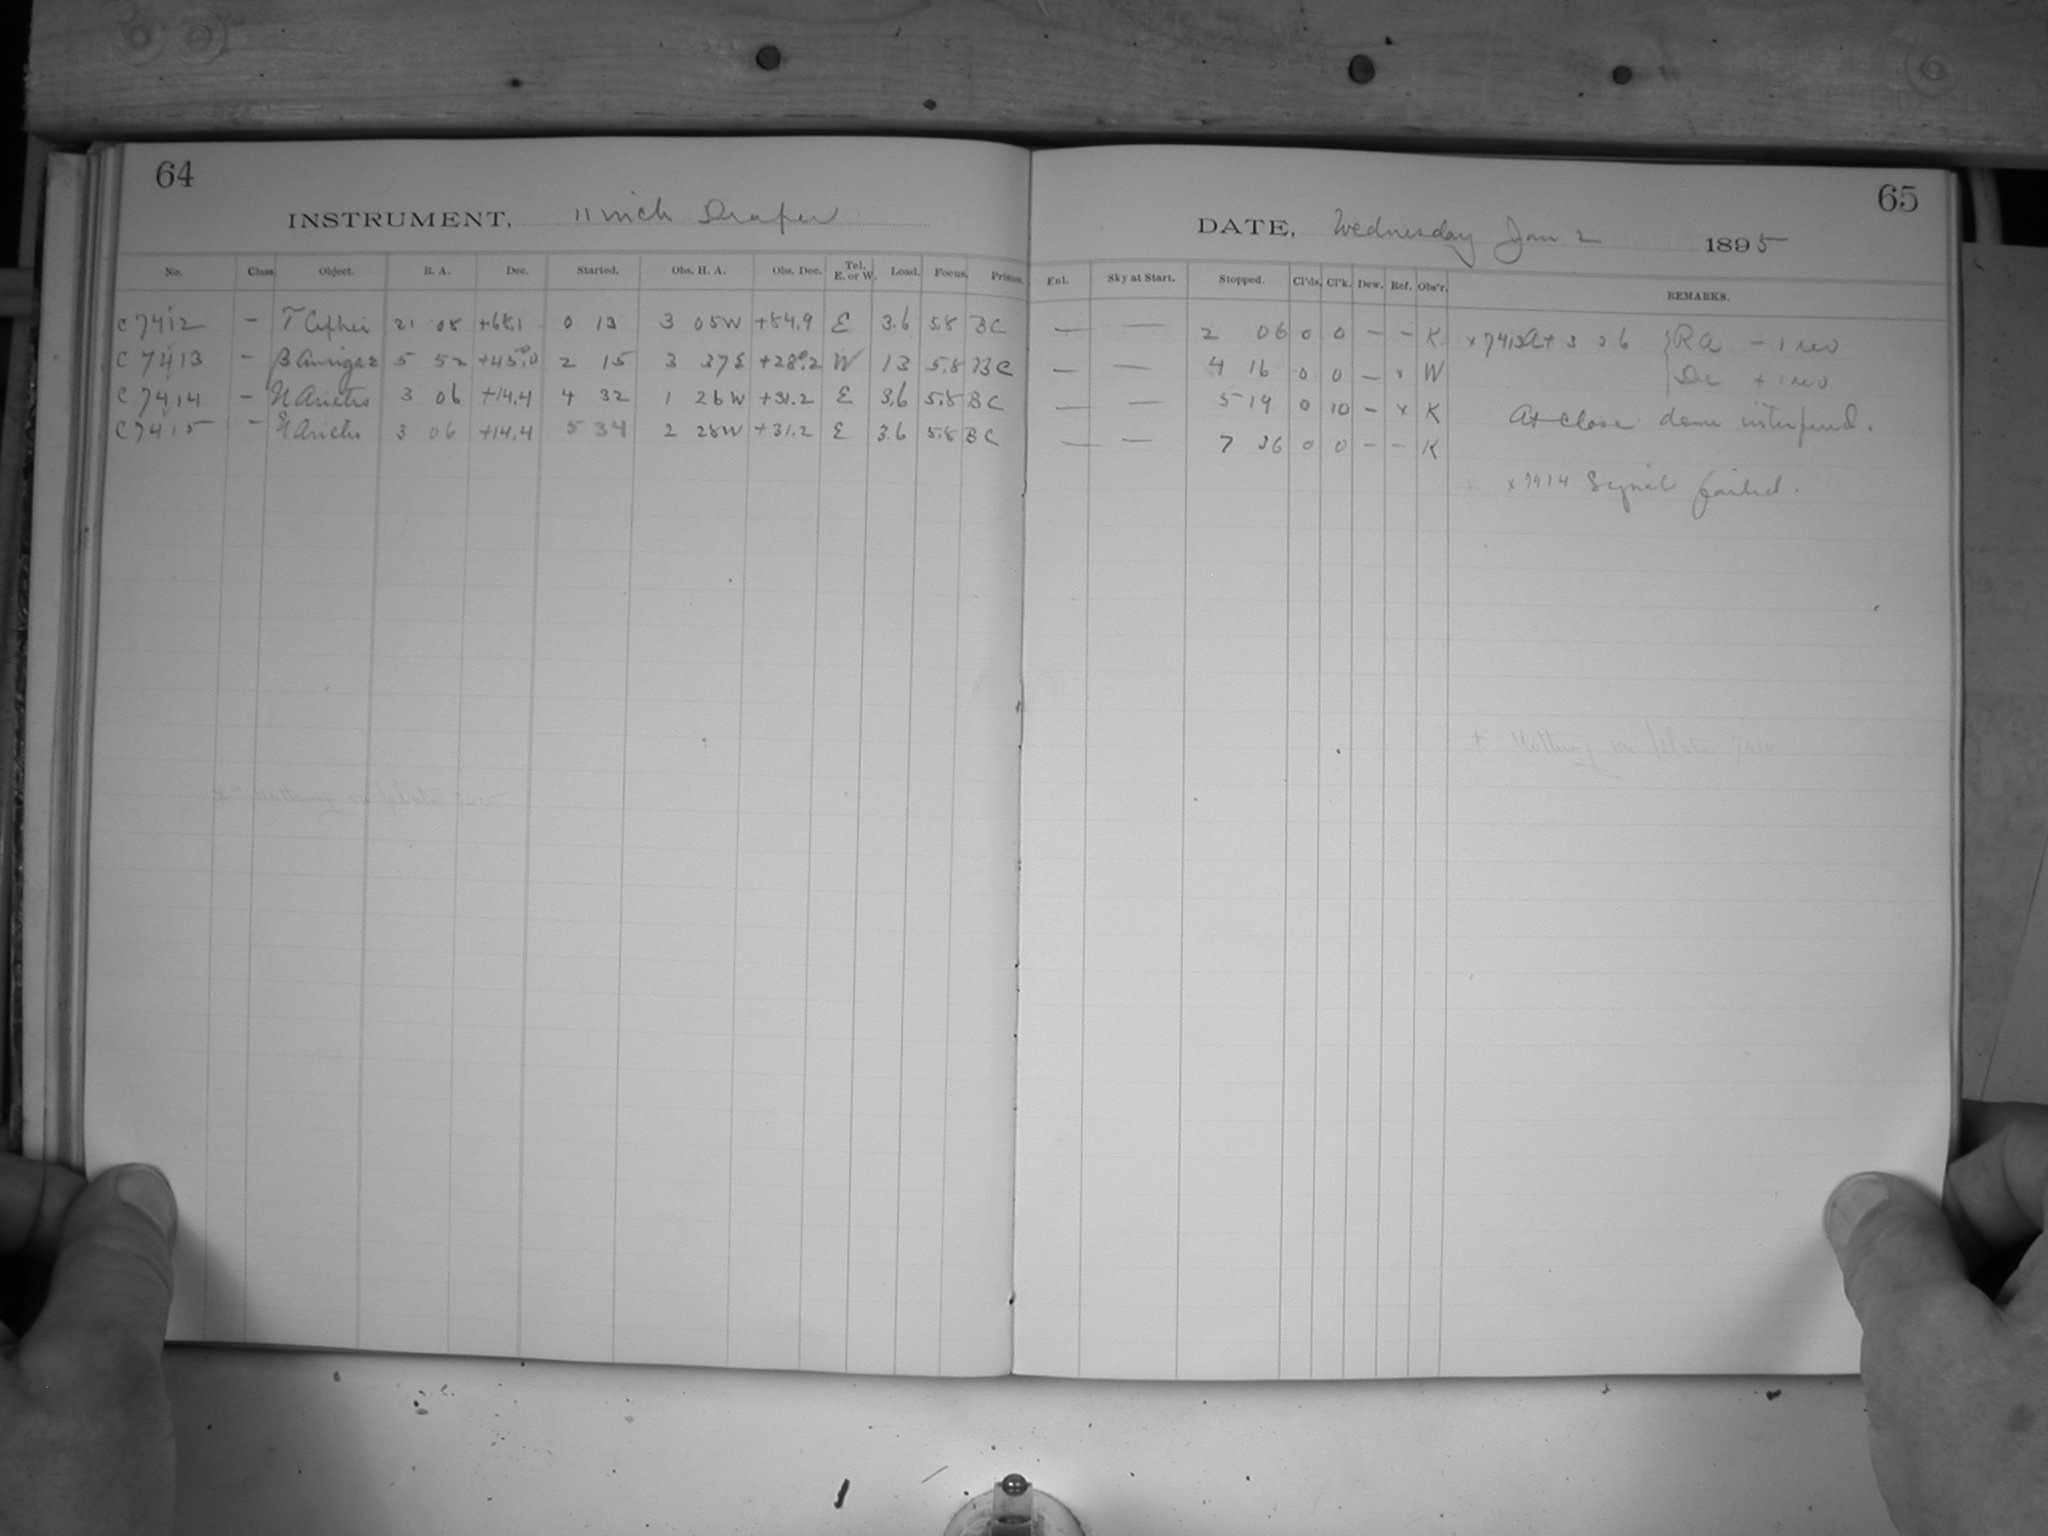 64
INSTRUMENT, 11 inch Draper
No. Class. Object. R. A. Dec. Started. Obs. H. A. Obs. Dec. Tel. E. or W. Load. Focus. Prisms.
C 7412 — T Cephei 21 08 +68.1 0 13 3 05W +84.9 E 3.6 5.8 BC
C 7413 — β Aurigae 5 52 +45.0 2 15 3 37E +28.2 W 13 5.8 BC
C 7414 — Arietis 3 06 +14.4 4 32 1 26W +31.2 E 3.6 5.8 BC
C 7415 — Arietis 3 06 +14.4 5 34 2 28W +31.2 E 3.6 5.8 BC
Nothing on plate
65
DATE, Wednesday Jan 2 1895
Enl. Sky at Start. Stopped. Cl'ds. Cl'k. Dew. Ref. Obs'r. REMARKS.
— — 2 06 0 0 — — K x 7413 At 3 26 { RA — 1 rev
— — 4 16 0 0 — x W Dec + 1 rev
— — 5 19 0 10 — x K At close dome interfered.
— — 7 36 0 0 — — K
x 7414 Signal failed.
Nothing on plate